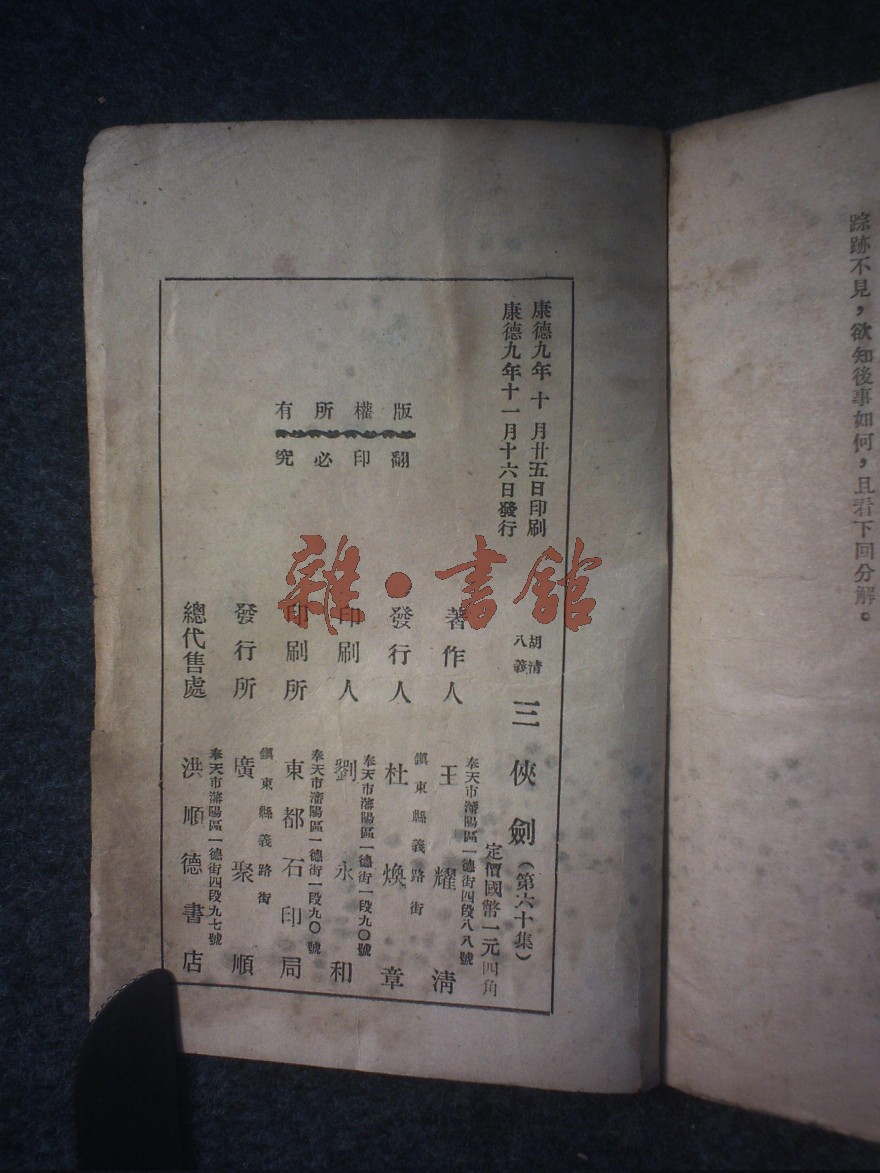 踪跡不見，欲知後事如何，且看下回分解。
康德九年十月廿五日印刷
康德九年十一月十六日發行
版權所有
翻印必究
胡清
八義
三俠劍（第六十集）
定價國幣一元四角
奉天市瀋陽區一德街四段八八號
著作人 王耀清
鎮東縣義路街
發行人 杜煥章
奉天市瀋陽區一德街一段九〇號
印刷人 劉永和
奉天市瀋陽區一德街一段九〇號
印刷所 東都石印局
鎮東縣義路街
發行所 廣聚順
奉天市瀋陽區一德街四段九七號
總代售處 洪順德書店
雜·書館